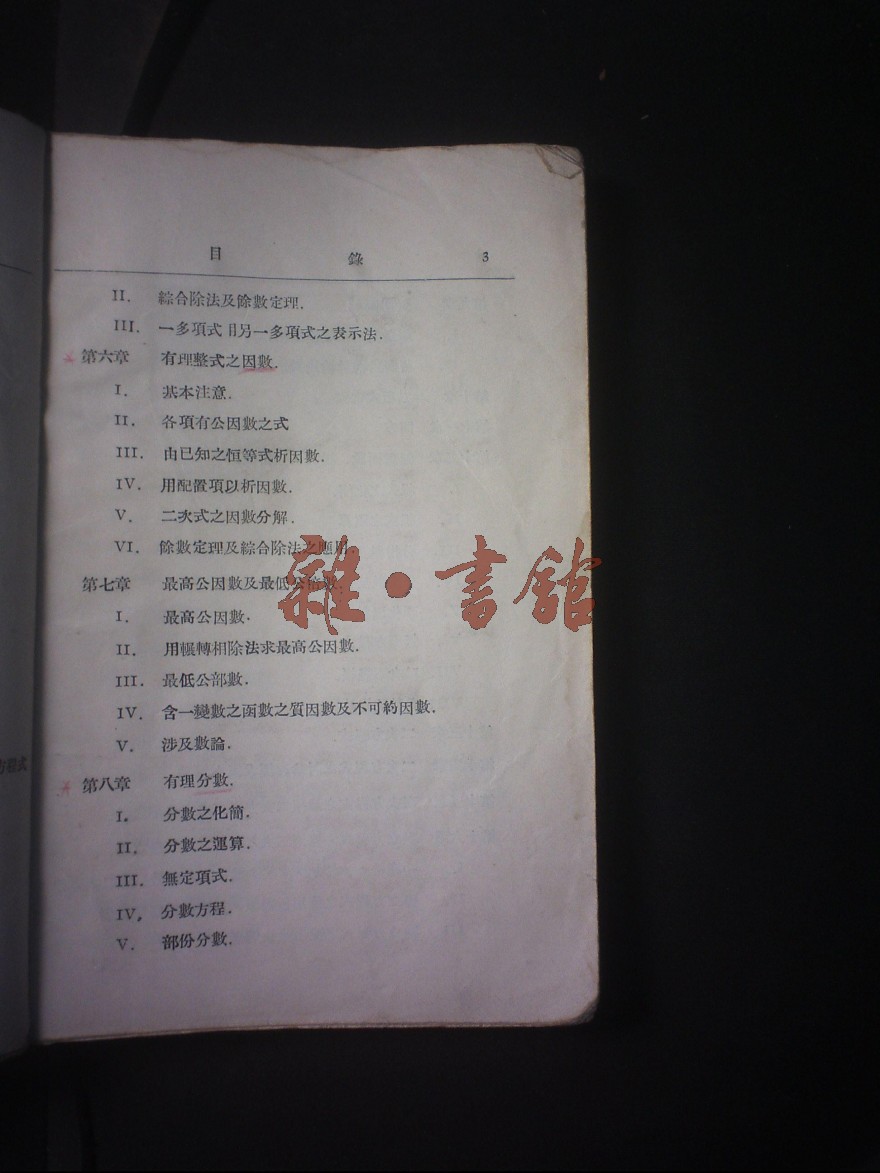 目 錄 3
II. 綜合除法及餘數定理.
III. 一多項式用另一多項式之表示法.
第六章 有理整式之因數.
I. 基本注意.
II. 各項有公因數之式
III. 由已知之恒等式析因數.
IV. 用配置項以析因數.
V. 二次式之因數分解.
VI. 餘數定理及綜合除法之應用.
第七章 最高公因數及最低公倍數.
雜·書館
I. 最高公因數.
II. 用輾轉相除法求最高公因數.
III. 最低公部數.
IV. 含一變數之函數之質因數及不可約因數.
V. 涉及數論.
方程式
第八章 有理分數.
I. 分數之化簡.
II. 分數之運算.
III. 無定項式.
IV. 分數方程.
V. 部份分數.